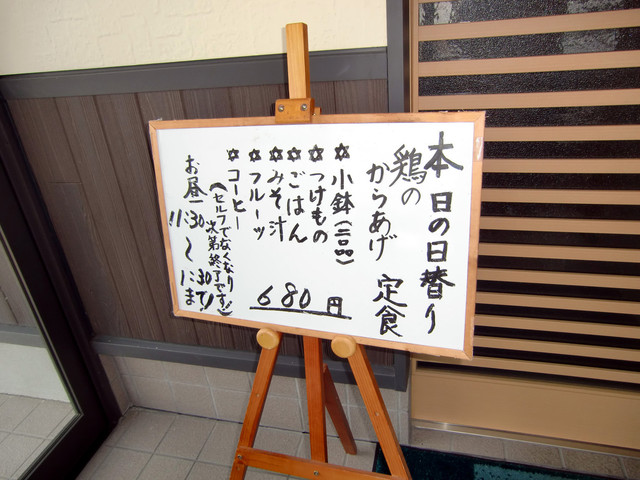 本日の日替り
鶏の
からあげ 定食
✡小鉢(二品)
✡つけもの
✡ごはん
✡みそ汁
✡フルーツ
✡コーヒー
(セルフでなくなり
次第終了です!!)
680円
お昼 11:30
〜
1:30
まで!